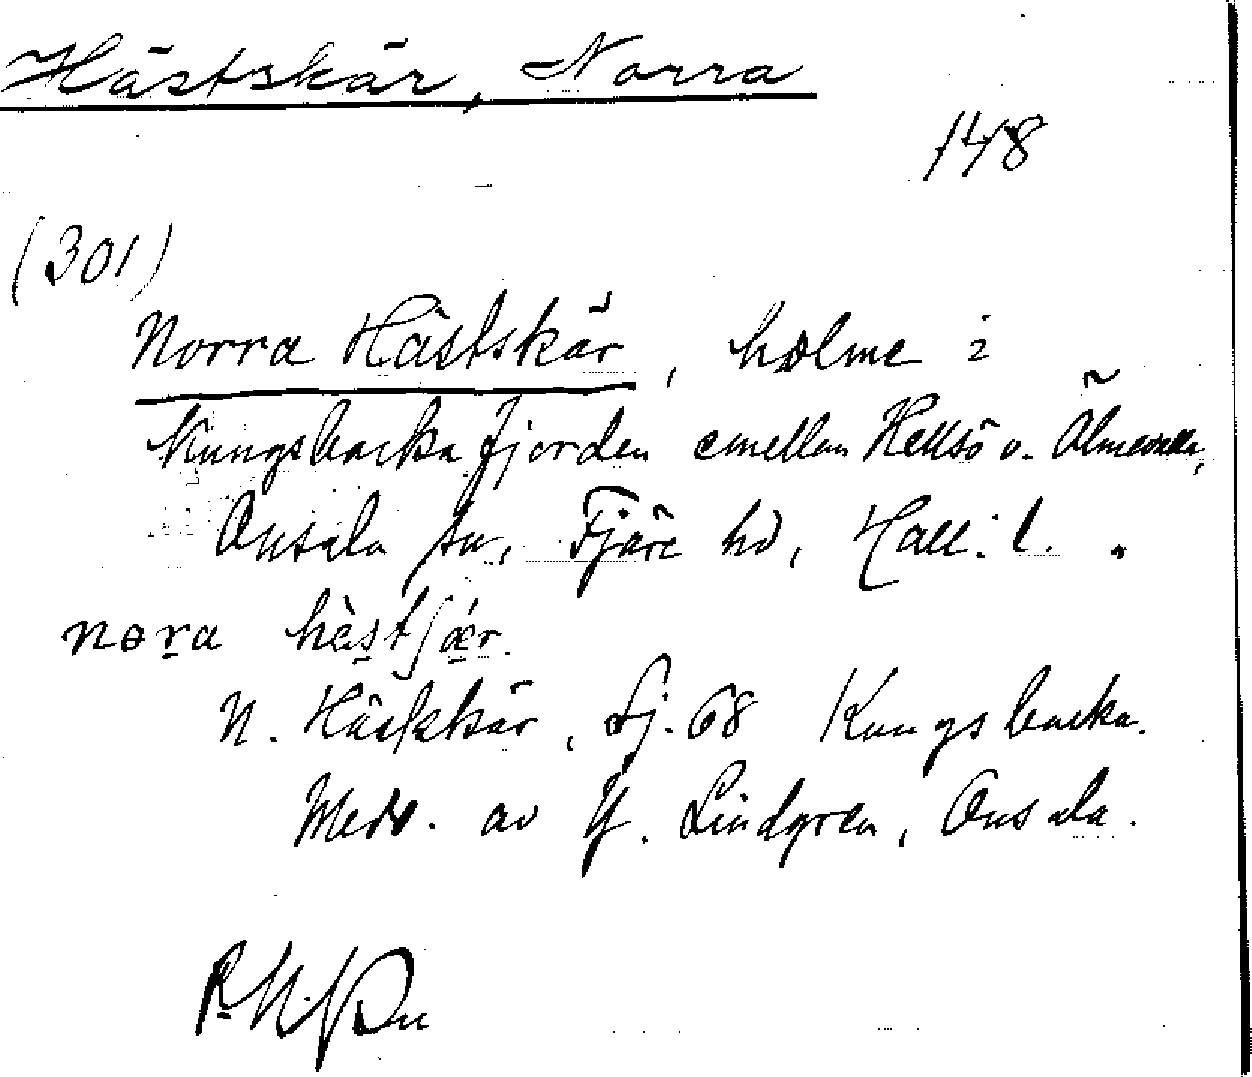 Hästskär, Norra
148
(301)
Norra Hästskär, holme i
Kungsbackafjorden emellan Hellsö o.
Onsala sn, Fjäre hd, Hall. l.
nora hästʃær.
N. Hästskär, Sj. 68 Kungsbacka.
Medd. av Y. Lindgren, Onsala.